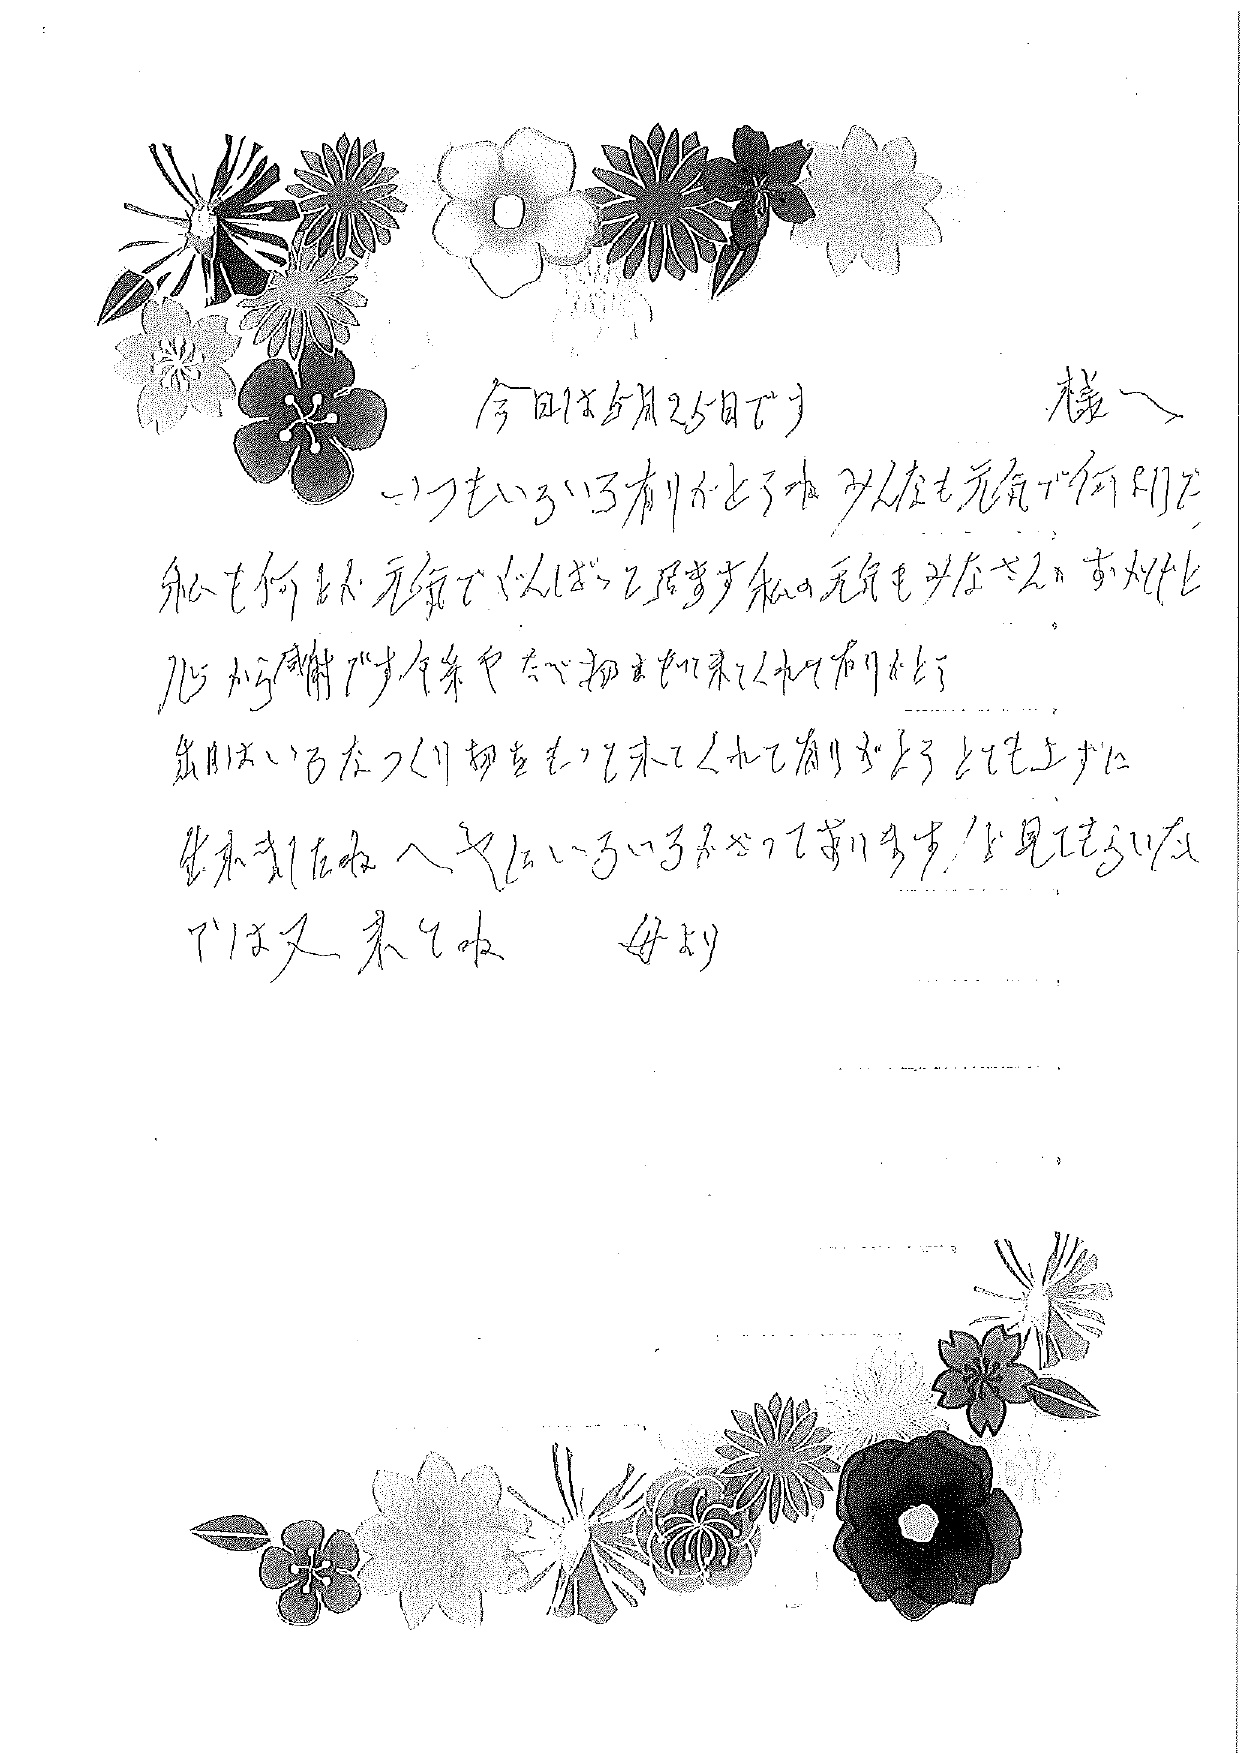 今日は5月25日です 様へ
いつもいろいろ有りがとうね みんなも元気で何よりだ
私も何とか元気でがんばって居ます私の元気もみなさんのおかげと
心から感謝です や たべ物まもって来てくれて有りがとう
はいろなつくり物をもって来てくれて有りがとう とても上ずに
出来ましたね へやにいろいろかざってあります 見てもらいたい
では又 来てね 母より